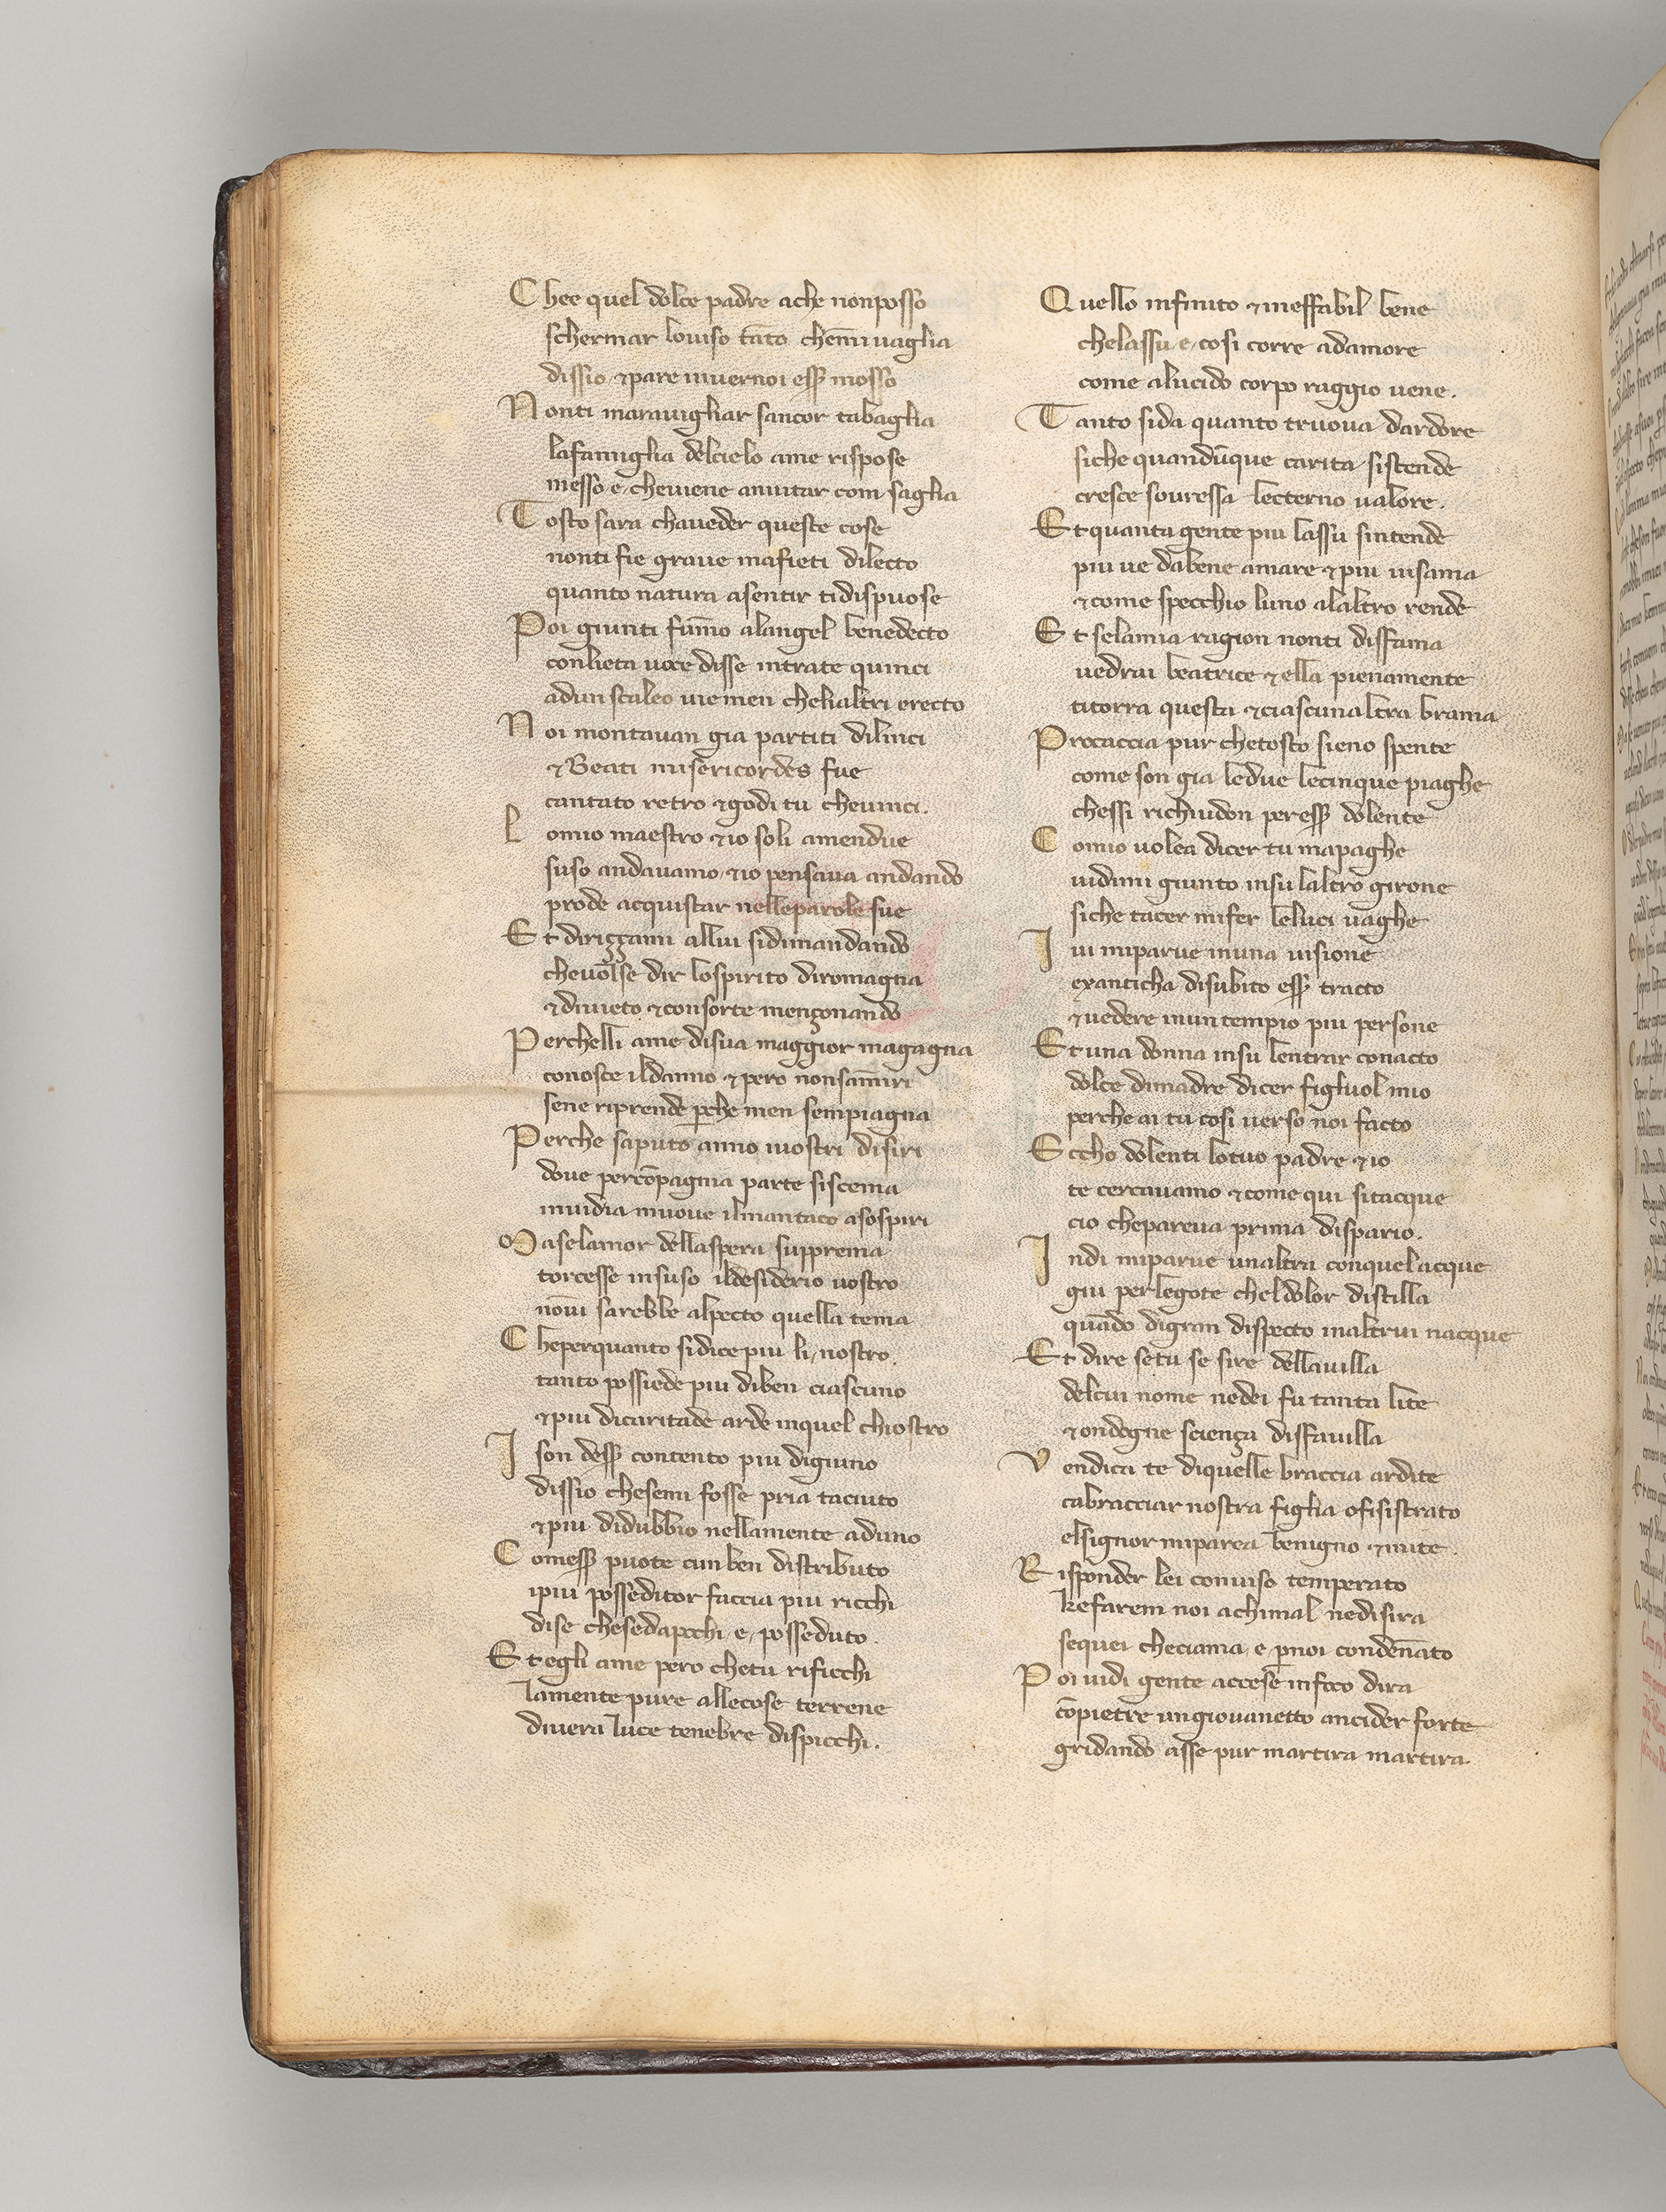 Chee quel dolce padre ache nonposso
schermar louiso tāto chem̄i uaglia
dissio ⁊pare inuernoi esser mosso
Nonti marauigliar sancor tabaglia
lafamiglia delcielo ame rispose
messo e cheuiene ainuitar com saglia
Tosto sara chaueder queste cose
nonti fie graue mafieti dilecto
quanto natura asentir tidispuose
Poi giunti fūmo alangel benedecto
conlieta uoce disse intrate quinci
adun scaleo uiemen cheliāltri erecto
Noi montauan gia partiti dilinci
⁊Beati misericordes fue
cantato retro ⁊godi tu cheuinci.
Lomio maestro ⁊io soli amendue
suso andauamo ⁊io pensaua andando
prode acquistar nelleparole sue
Et diriççami allui sidimandando
cheuolse dir lospirito diromagna
⁊diuieto ⁊consorte mençonando
Perchelli ame disua maggior magagna
conosce ildanno ⁊pero nonsāmiri
sene riprende perche men sempiagna
Perche saputo anno iuostri disiri
doue percōpagnia parte siscema
inuidia muoue ilmantaco asospiri
Maselamor dellaspera supprema
torcesse insuso ildesiderio uostro
nōui sarebbe alpecto quella tema
Cheperquanto sidice piu li nostro.
tanto possiede piu diben ciascuno
⁊piu dicaritade arde inquel chiostro
I son desser contento piu digiuno
dissio chesemi fosse pria taciuto
⁊piu didubbio nellamente aduno
Comesser puote cunben distributo
ipiu posseditor faccia piu ricchi
dise chesedapochi e posseduto.
Et egli ame pero chetu rificchi
lamente pure allecose terrene
diuera luce tenebre dispicchi.
Quello infinito ⁊ineffabil bene
chelassu e cosi corre adamore
come alucido corpo raggio uene.
Tanto sida quanto truoua dardore
siche quandūque carita sistende
cresce souressa lecterno ualore.
Et quanta gente piu lassu sintende
piu ue dabene amare ⁊piu uisama
⁊come specchio luno alaltro rende
Et selamia ragion nonti disfama
uedrai beatrice ⁊ella pienamente
titorra questa ⁊ciascunaltra brama
Procaccia pur chetosto sieno spente
come son gia ledue lecinque piaghe
chessi richiudon peresser dolente
Comio uolea dicer tu mapaghe
uidimi giunto insu laltro girone
siche tacer mifer leluci uaghe
Iui miparue inuna uisione
exanticha disubito esser tracto
⁊uedere inun tempio piu persone
Et una donna insu lentrar conacto
dolce dimadre dicer figluol mio
perche ai tu cosi uerso noi facto
Eccho dolenti lotuo padre ⁊io
te cercauamo ⁊come qui sitacque
cio chepareua prima dispario.
Indi miparue unaltra conquelacque
giu perlegote cheldolor distilla
quādo digran dispecto inaltrui nacque
Et dire setu se sire dellauilla
delcui nome nedei fu tanta lite
⁊ondogne sciença disfauilla
Vendica te diquelle braccia ardite
cabracciar nostra figlia ofisistrato
elsignor miparea benigno ⁊mite.
Risponder lei conuiso temperato
kefarem noi achimal nedisira
sequei checiama e pernoi condēnato
Poi uidi gente accese infoco dira
cōpietre ungiouanetto ancider forte
gridando asse pur martira martira.